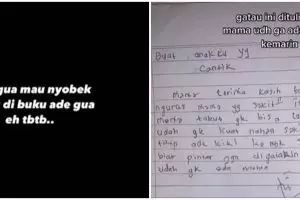 gua mau nyobek
di buku ade gua
eh tbtb..
gatau ini dituli
mama udh ga ad
kemarin
Buat anakku yg
Cantik
mama terima kasih
ngurus mama yg sakit
takut gk bisa
udah gk kuat nahan
titip ade
biar pintar
udah gk ada mama